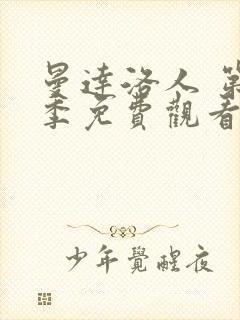 曼達洛人 第
季免費觀看
少年覺醒夜